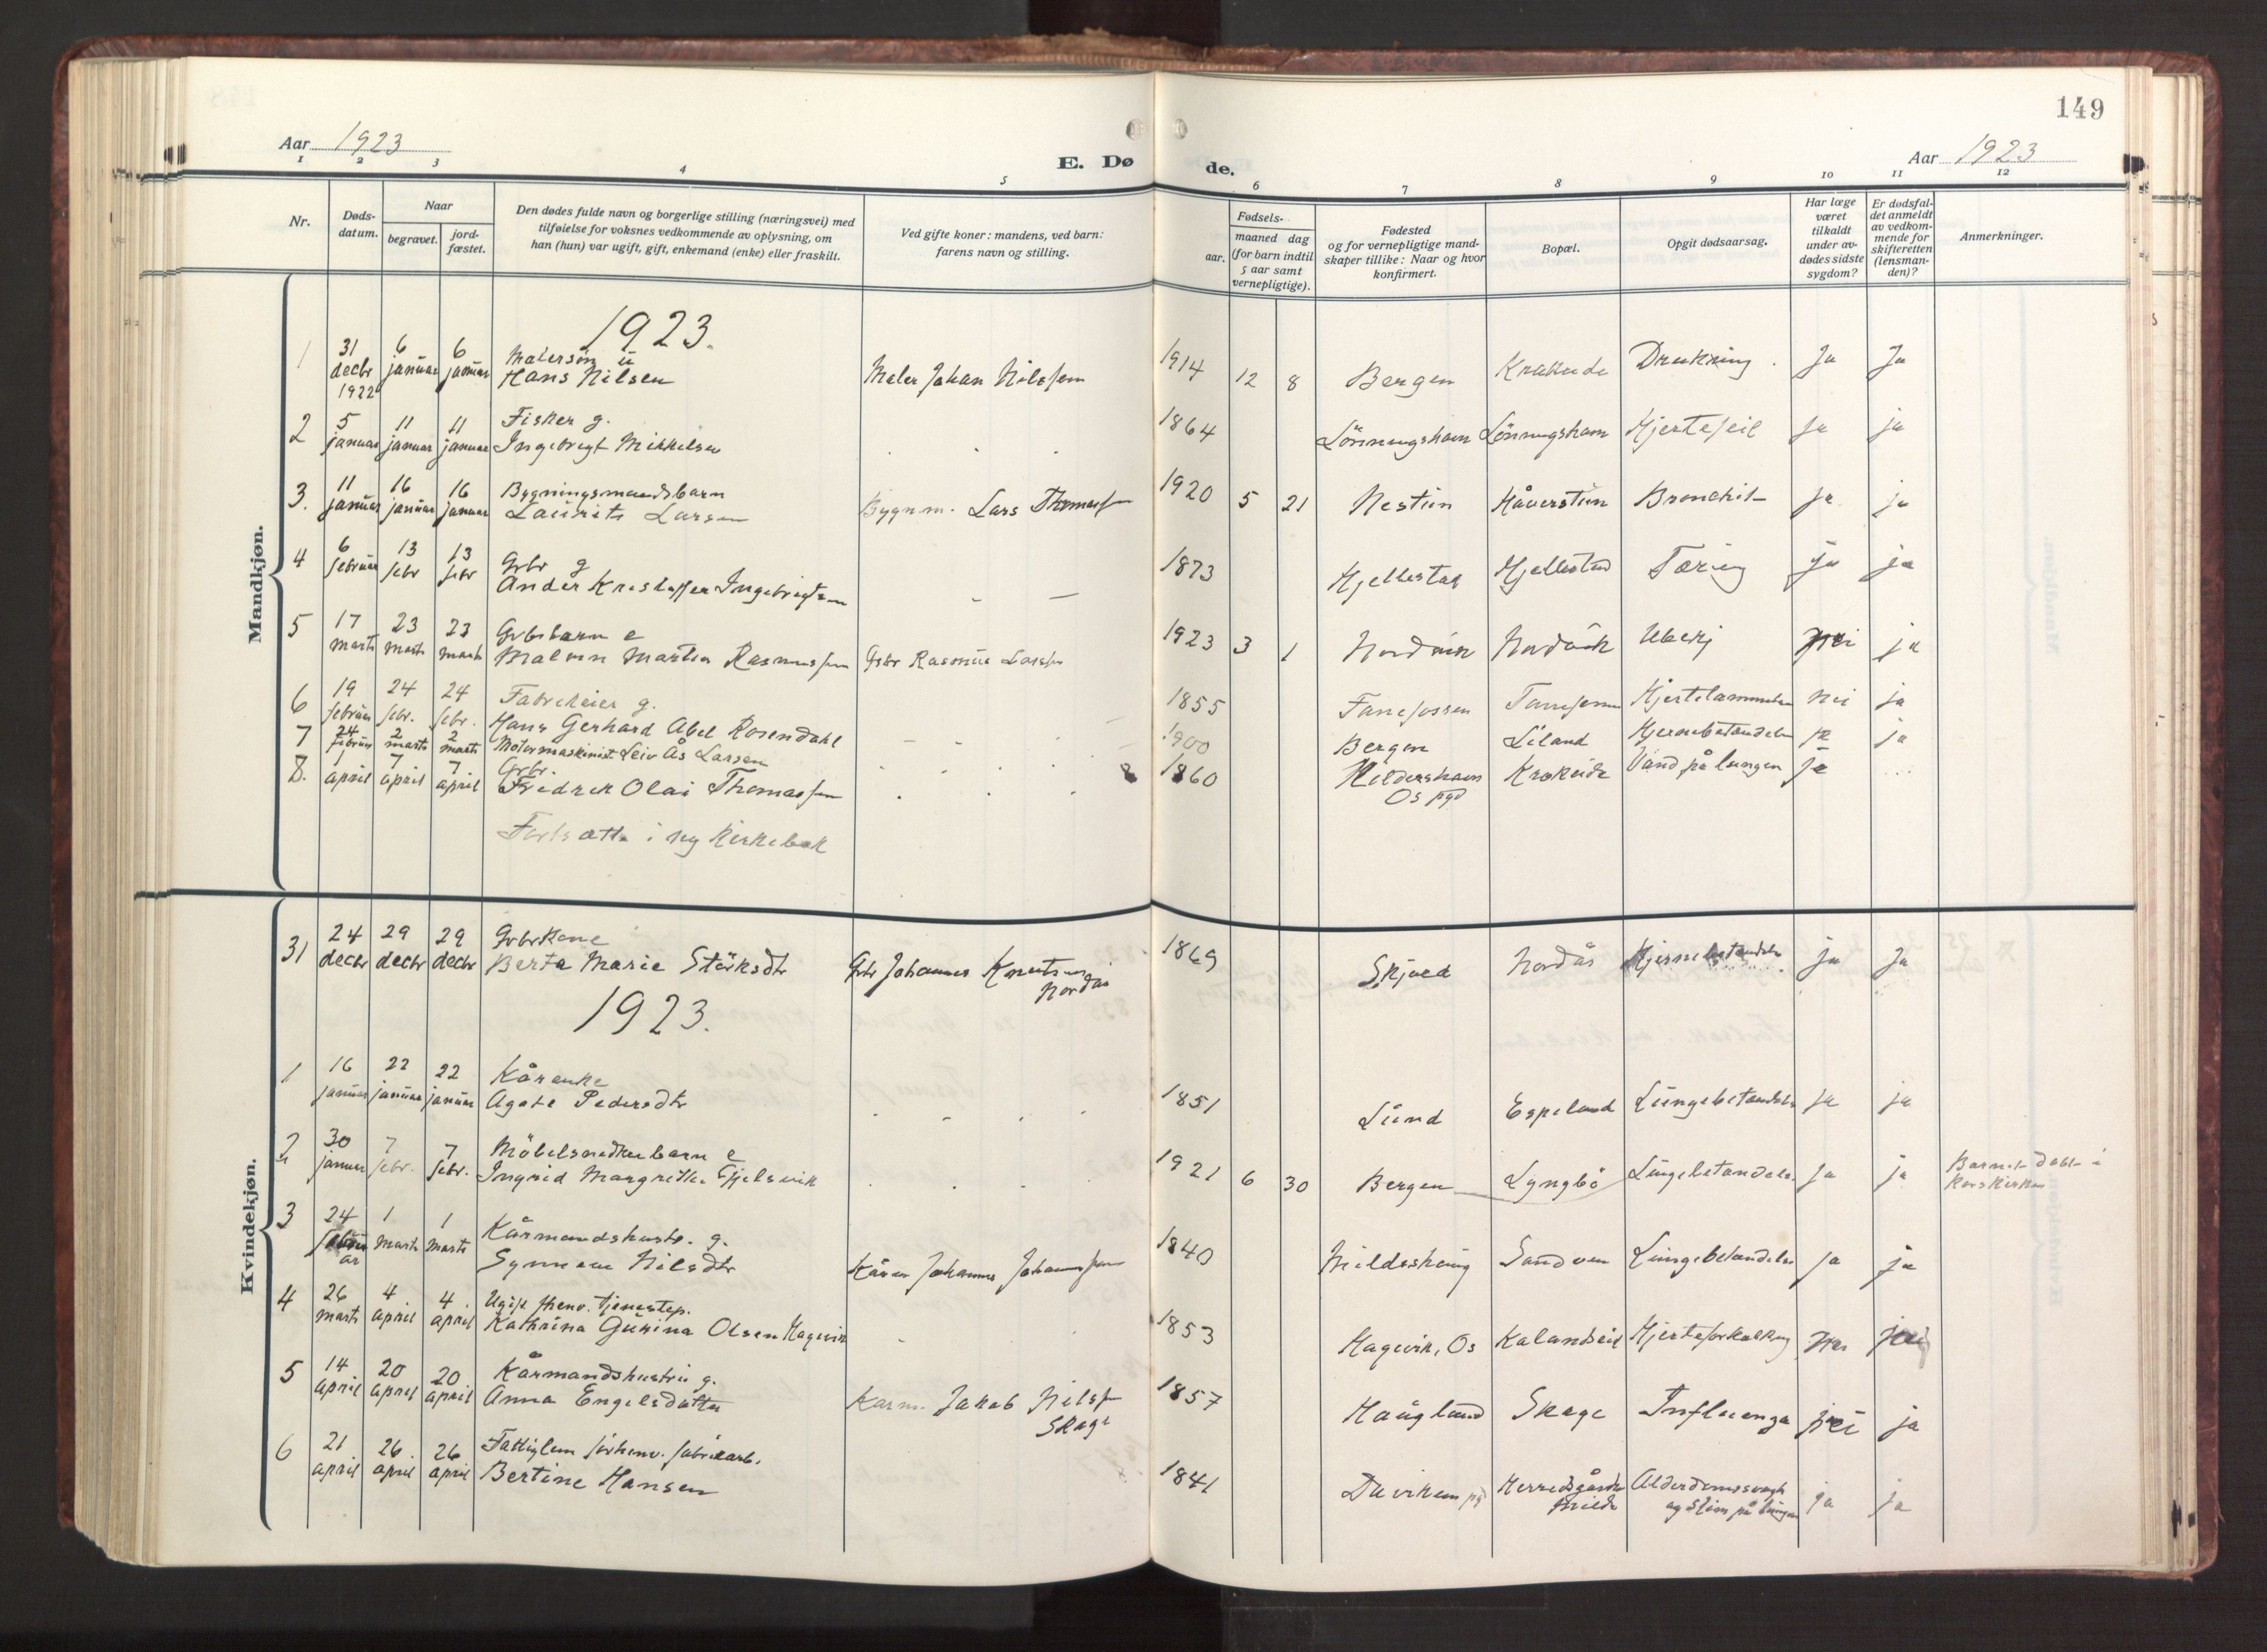 149
Aar 1923
E. Dø
de.
Aar 1923
1 2 3 4 5 6 7 8 9 10 11 12
Nr.
Døds-
datum.
Naar
begravet.
jord-
fæstet.
Den dødes fulde navn og borgerlige stilling (næringsvei) med
tilføielse for voksnes vedkommende av oplysning, om
han (hun) var ugift, gift, enkemand (enke) eller fraskilt.
Ved gifte koner: mandens, ved barn:
farens navn og stilling.
Fødsels-
aar.
maaned dag
(for barn indtil
5 aar samt
vernepligtige).
Fødested
og for vernepligtige mand-
skaper tillike: Naar og hvor
konfirmert.
Bopæl.
Opgit dødsaarsag.
Har læge
været
tilkaldt
under av-
dødes sidste
sygdom?
Er dødsfal-
det anmeldt
av vedkom-
mende for
skifteretten
(lensman-
den)?
Anmerkninger.
Mandkjøn.
1923.
1 31 decbr 1922 6 januar 6 januar Malersøn u
Hans Nilsen Maler Johan Nilssen 1914 12 8 Bergen Krakeide Drukning. Ja Ja
2 5 januar 11 januar 11 januar Fisker g.
Ingebrigt Mikkelsen 1864 Lönningshavn Lönningshavn Hjertefeil Ja ja
3. 11 januar 16 januar 16 januar Bygningsmandsbarn
Laurits Larsen Bygnm. Lars Thomassen 1920 5 21 Nestun Håverstun Bronchit ja ja
4 6 februar 13 febr 13 febr Grbr g
Ander Kristoffer Ingebrigtsen 1873 Hjellestad Hjellestad Tæring ja ja
5 17 marts 23 marts 23 marts Grbrbarn e
Malvin Martin Rasmussen Grbr Rasmus Larsen 1923 3 1 Nordvik Nordvik Ubekj nei ja
6 19 februar 24 febr. 24 febr. Fabrikeier g.
Hans Gerhard Abel Rosendahl 1855 Fanefossen Fanefossen Hjertelammelse nei ja
7 24 februar 2 marts 2 marts Motormaskinist Leiv Ås Larsen 1900 Bergen Liland Hjernebetændelse ja ja
8. 1 april 7 april 7 april Grbr.
Fredrik Olai Thomassen 8 1860 Hildershavn Krokeide Vand på lungen ja
Os pgd
Fortsætt i ny Kirkebok
Kvindekjøn.
31 24 decbr 29 decbr 29 decbr Grbrkone
Berta Marie Störksdtr Grbr Johannes Knutsen 1869 Skjold Nordås Hjernebetændelse ja Ja
Nordås
1923.
1 16 januar 22 januar 22 januar Kårenke
Agate Pedersdtr 1851 Lund Espeland Lungebetændelse ja ja
2 30 januar 7 febr. 7 febr. Möbelsnedkerbarn e
Ingrid Margrethe Gjelsvik 1921 6 30 Bergen Lyngbö Lungebetændelse ja ja Barnet døbt i
Korskirken
3 24 februar 1 marts 1 marts Kårmandshustr. g.
Synneve Nilsdtr Kårm Johannes Johannessen 1840 Mildeshaug Sandven Lungebetændelse ja ja
4 26 marts 4 april 4. april Ugift fhenv. tjenestep.
Kathrina Gurina Olsen Hagevik 1853 Hagevik, Os Kalandseid Hjerteforkalkning
5 14 april 20 april 20 april Kårmandshustru g.
Anna Engelsdatter Karm. Jakob Nilssen 1857 Haugland Skage Influenza nei ja
Skage
6 21 april 26 april 26 april Fattiglem forhenv. fabrikarb.
Bertine Hansen 1841 Davikens pgd Herredsgården Alderdomssvagh ja ja
Milde og Slim på lungen